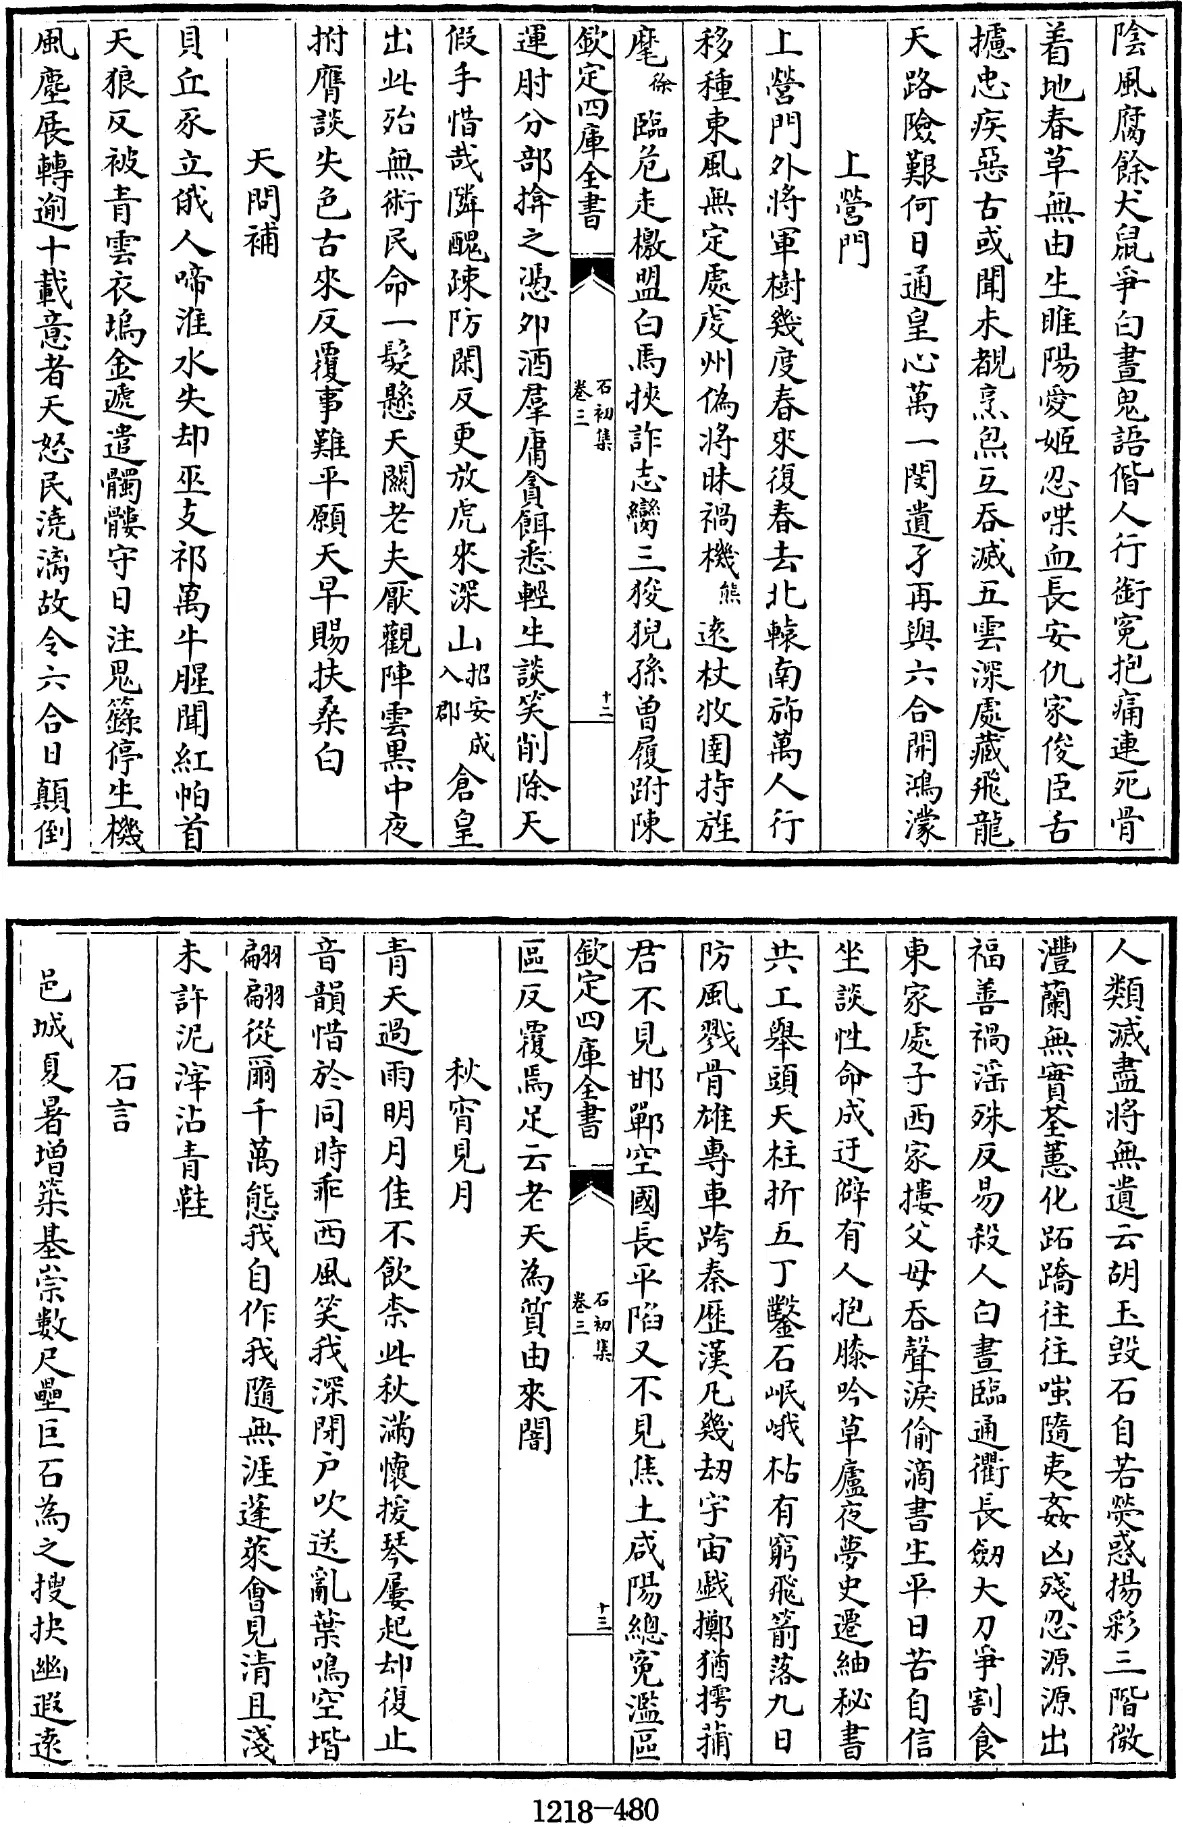 陰風腐餘犬鼠爭白晝鬼語偕人行銜寃抱痛連死骨
着地春草無由生睢陽愛姬忍喋血長安仇家俊臣舌
攄忠疾惡古或聞未覩烹炰互吞滅五雲深處藏飛龍
天路險艱何日通皇心萬一閔遺孑再與六合開鴻濛
上營門
上營門外將軍樹幾度春來復春去北轅南斾萬人行
移種東風無定處䖍州偽將昧禍機熊遠杖收圉持旌
麾徐臨危走檄盟白馬挾詐志臠三狻猊孫曾履跗陳
欽定四庫全書
石初集
卷三
十二
運肘分部揜之憑卯酒羣庸貪餌悉輕生談笑削除天
假手惜哉隣醜疎防閑反更放虎來深山招安成入郡倉皇
出此殆無術民命一髮懸天關老夫厭觀陣雲黒中夜
拊膺談失色古來反覆事難平願天早賜扶桑白
天問補
貝丘豕立俄人啼淮水失却巫支祁萬牛腥聞紅帕首
天狼反被青雲衣塢金遞遣髑髏守日注鬼籙停生機
風塵展轉逾十載意者天怒民澆漓故令六合日顛倒
人類滅盡將無遺云胡玉毀石自若熒惑揚彩三階微
灃蘭無實荃蕙化跖蹻往往嗤隨夷姦凶殘忍源源出
福善禍淫殊反易殺人白晝臨通衢長劒大刀爭割食
東家處子西家摟父母吞聲淚偷滴書生平日苦自信
坐談性命成迂僻有人抱膝吟草廬夜夢史遷紬秘書
共工舉頭天柱折五丁鑿石岷峨枯有窮飛箭落九日
防風戮骨雄專車跨秦歷漢凡幾劫宇宙戲擲猶摴蒱
君不見邯鄲空國長平陷又不見焦土咸陽總寃濫區
欽定四庫全書
石初集
卷三
十三
區反覆焉足云老天為質由來闇
秋宵見月
青天過雨明月佳不飲柰此秋滿懷援琴屢起却復止
音韻惜於同時乖西風笑我深閉户吹送亂葉鳴空堦
翩翩從爾千萬態我自作我隨無涯蓬萊會見清且淺
未許泥滓沾青鞋
石言
邑城夏暑增築基崇數尺壘巨石為之搜抉幽遐遠
1218-480